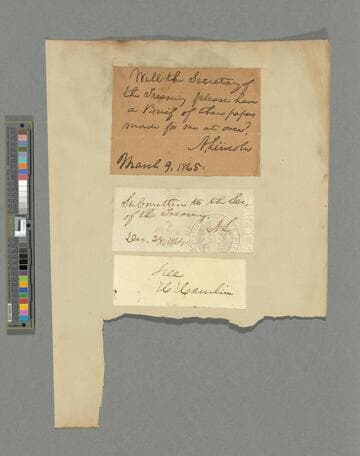 Will the Secretary of
the Treasury please have
a Brief of these papers
made for me at once?
A. Lincoln
March 9, 1865.
Submitted to the Sec.
of the Treasury.
A. L.
Dec. 28, 186
Free
H Hamlin